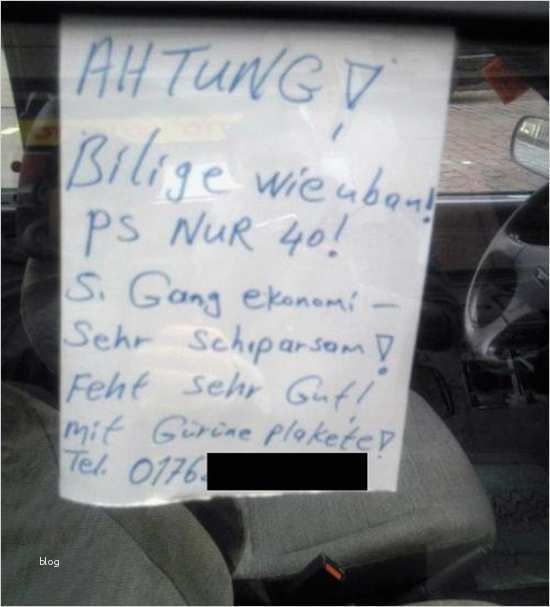 AHTUNG!
Bilige wie uban!
PS NUR 40!
5. Gang ekonomi –
Sehr schiparsam!
Feht sehr Gut!
mit Gürüne plakete!
Tel. 0176
blog